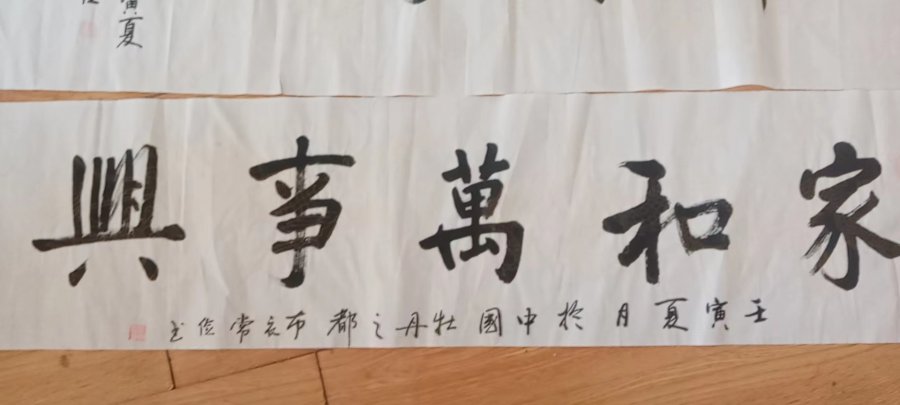 寅夏
家和萬事興
壬寅夏月於中國牡丹之都布衣常俭书